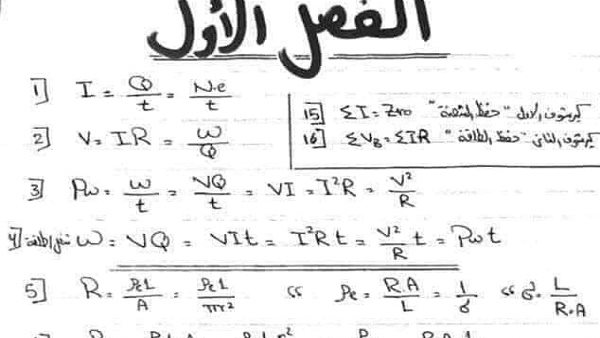 الفصل الأول
1] I = Q/t = N.e/t
2] V = IR = W/Q
15] ΣI = Zero "كيرشوف الاول "حفظ الشحنة
16] ΣV_B = ΣIR "كيرشوف الثاني "حفظ الطاقة
3] Pw = W/t = VQ/t = VI = I²R = V²/R
4] W = VQ = VIt = I²Rt = V²/R t = Pwt
5] R = ρe L/A = ρe L/πr² " ρe = R.A/L = 1/σ " σ = L/R.A